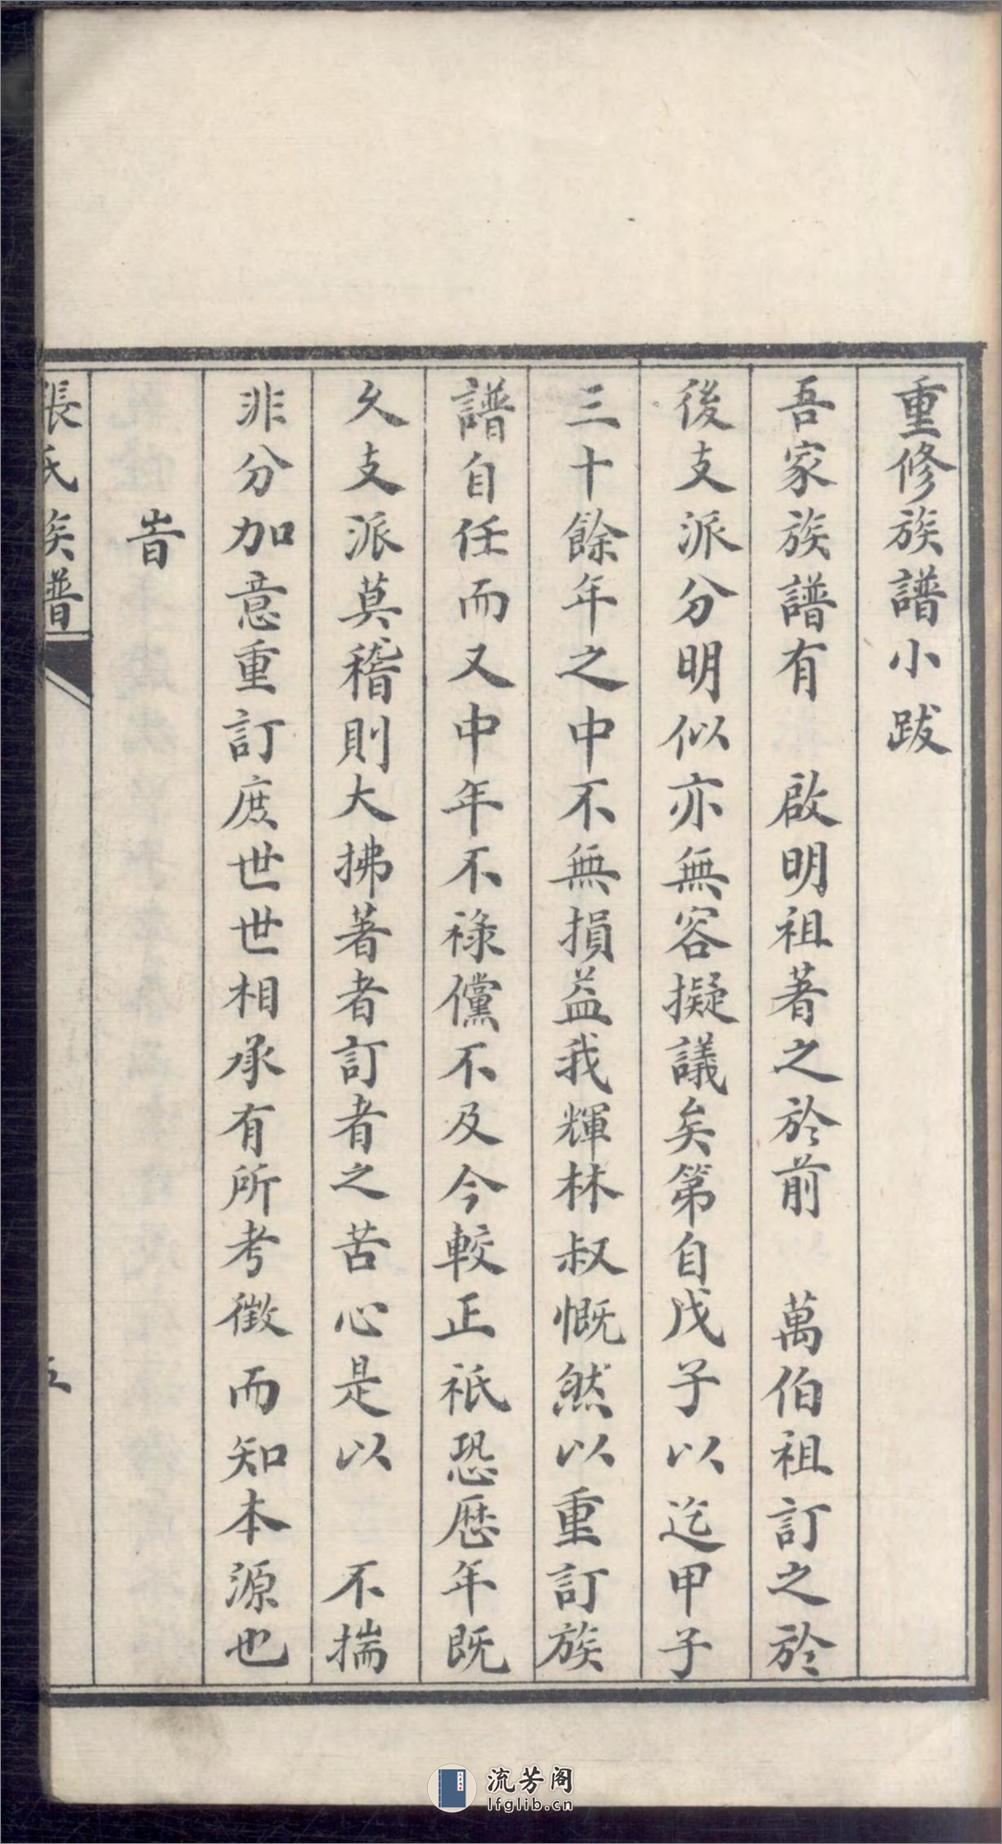 重修族譜小跋
吾家族譜有　啟明祖著之於前　萬伯祖訂之於
後支派分明似亦無容擬議矣第自戊子以迄甲子
三十餘年之中不無損益我輝林叔慨然以重訂族
譜自任而又中年不祿儻不及今較正祇恐歷年既
久支派莫稽則大拂著者訂者之苦心是以　不揣
非分加意重訂庶世世相承有所考徵而知本源也
旹
張氏族譜
五
流芳阁
lfglib.cn